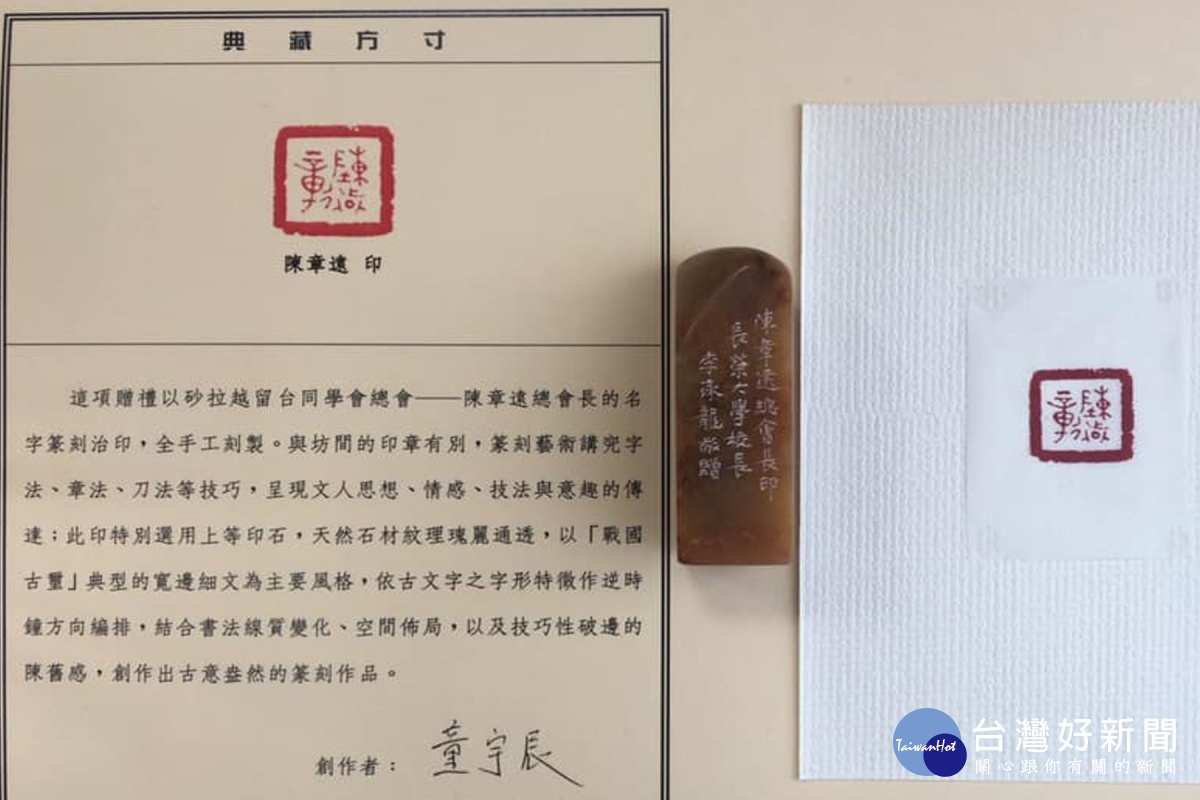 典藏方寸
陳章遠 印
這項贈禮以砂拉越留台同學會總會——陳章遠總會長的名
字篆刻治印，全手工刻製。與坊間的印章有別，篆刻藝術講究字
法、章法、刀法等技巧，呈現文人思想、情感、技法與意趣的傳
達；此印特別選用上等印石，天然石材紋理瑰麗通透，以「戰國
古璽」典型的寬邊細文為主要風格，依古文字之字形特徵作逆時
鐘方向編排，結合書法線質變化、空間佈局，以及技巧性破邊的
陳舊感，創作出古意盎然的篆刻作品。
創作者： 童宇辰
陳章遠總會長印
長榮大學校長
李泳龍敬贈
TaiwanHot
台灣好新聞
關心跟你有關的新聞